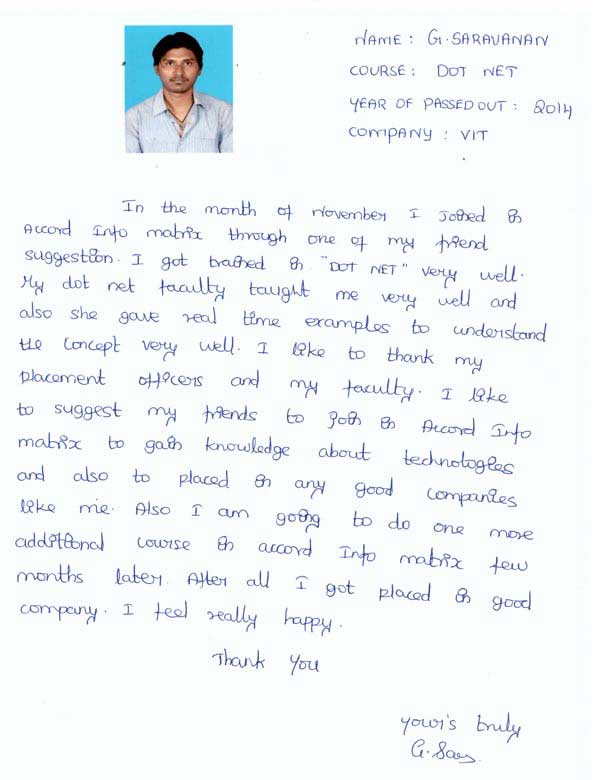 NAME : G. SARAVANAN
COURSE : DOT NET
YEAR OF PASSED OUT : 2014
COMPANY : VIT
In the month of November I joined in
Accord Info matrix through one of my friend
suggestion. I got trained in "DOT NET" very well.
My dot net faculty taught me very well and
also she gave real time examples to understand
the concept very well. I like to thank my
placement officers and my faculty. I like
to suggest my friends to join in Accord Info
matrix to gain knowledge about technologies
and also to placed in any good companies
like me. Also I am going to do one more
additional course in accord Info matrix few
months later. After all I got placed in good
company. I feel really happy.
Thank You
your's truly
G. Sar